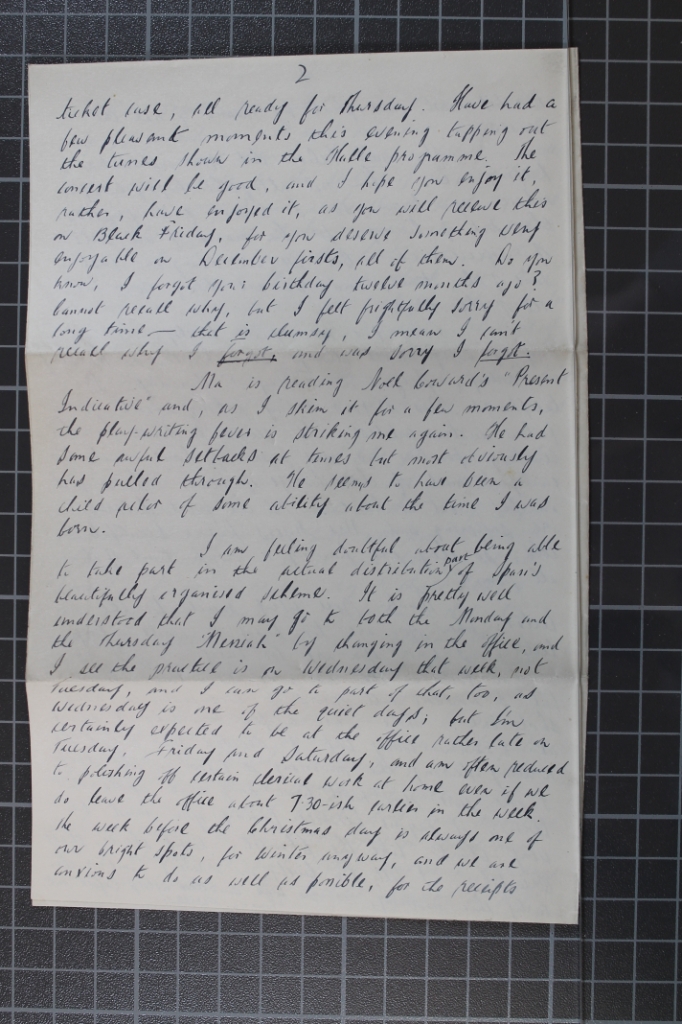 2
ticket case, all ready for Thursday. Have had a
few pleasant moments this evening tapping out
the tunes shown in the Halle programme. The
concert will be good, and I hope you enjoy it,
rather, have enjoyed it, as you will receive this
on Black Friday, for you deserve something very
enjoyable on December firsts, all of them. Do you
know, I forgot your birthday twelve months ago?
Cannot recall why, but I felt frightfully sorry for a
long time — that is clumsy, I mean I can't
recall why I forgot, and was sorry I forgot.
Ma is reading Noel Coward's "Present
Indicative" and, as I skim it for a few moments,
the play-writing fever is striking me again. He had
some awful setbacks at times but most obviously
has pulled through. He seems to have been a
child actor of some ability about the time I was
born.
I am feeling doubtful about being able
to take part in the actual distribution part of
beautifully organised scheme. It is pretty well
understood that I may go to both the Monday and
the Thursday "Messiah" by changing in the office, and
I see the practice is on Wednesday that week, not
Tuesday, and I can go to part of that, too, as
Wednesday is one of the quiet days; but I'm
certainly expected to be at the office rather late on
Tuesday, Friday and Saturday, and am often reduced
to polishing off certain clerical work at home even if we
do leave the office about 7.30-ish earlier in the week.
The week before the Christmas day is always one of
our bright spots, for Winter anyway, and we are
anxious to do as well as possible, for the receipts